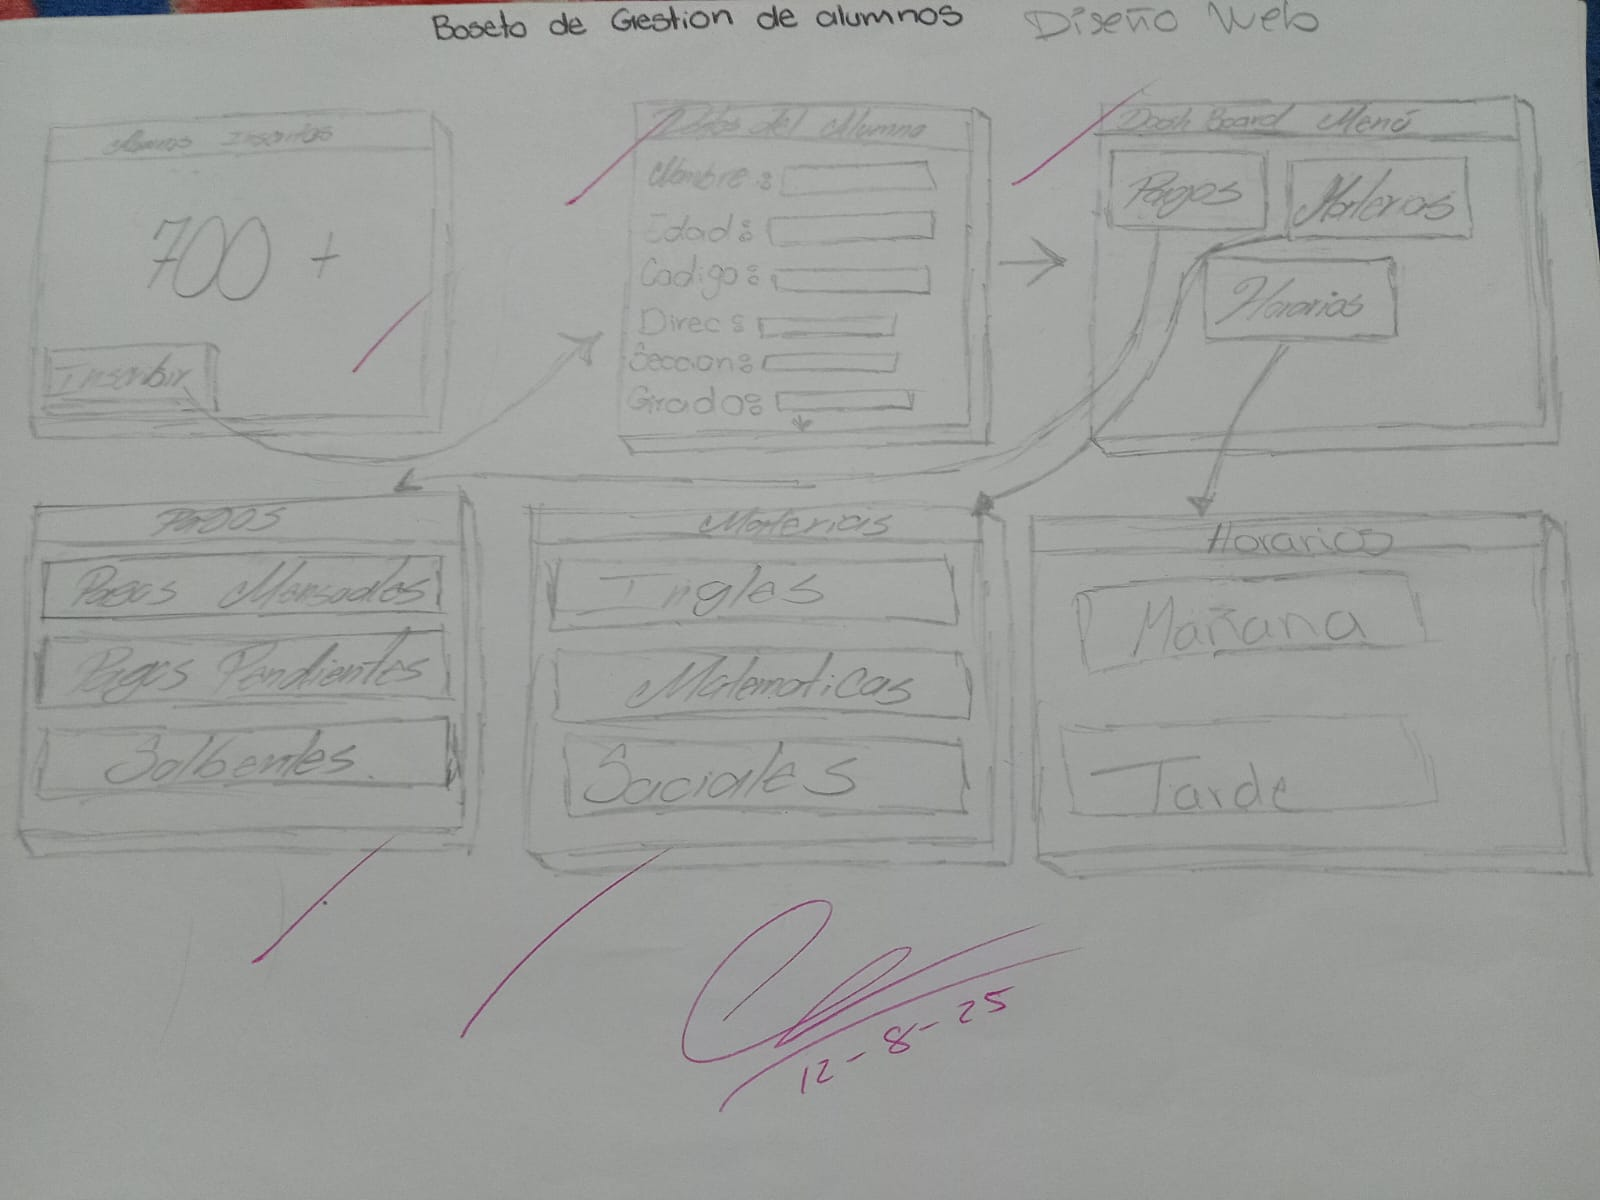 Boseto de Gestion de alumnos Diseño Web
Alumnos Inscritos
700 +
Inscribir
Datos del Alumno
Nombre:
Edad:
Codigo:
Direc:
Seccion:
Grado:
Dash Board Menú
Pagos
Materias
Horarios
Pagos
Pagos Mensuales
Pagos Pendientes
Solbentes
Materias
Ingles
Matematicas
Sociales
Horarios
Mañana
Tarde
12-8-25